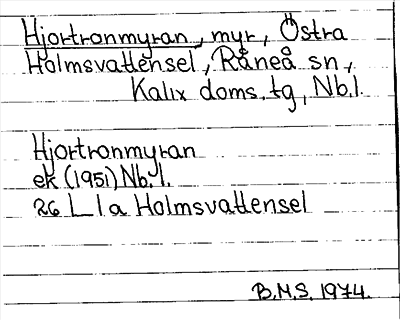 Hjortronmyran, myr, Östra
Holmsvattensel, Råneå sn,
Kalix doms. tg, Nb.l.
Hjortronmyran
ek (1951) Nb. l.
26 L 1 a Holmsvattensel
B.M.S. 1974.